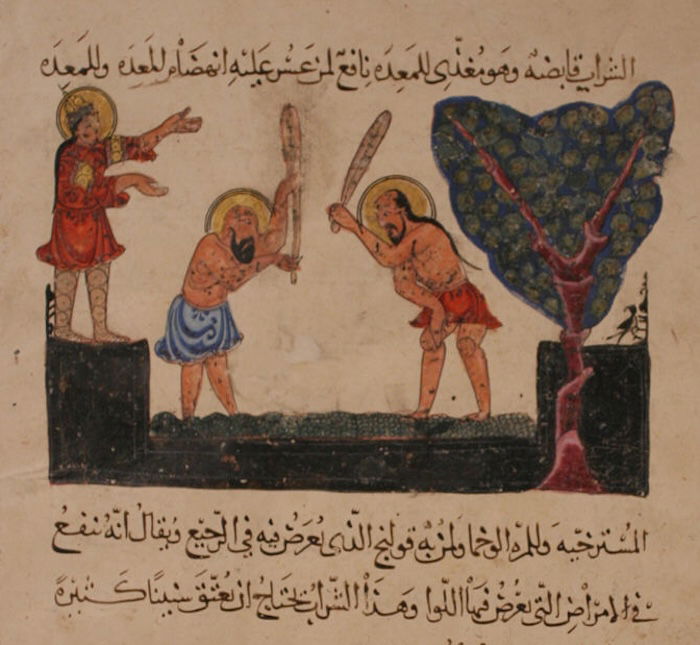 الشراب قابضه وهو مغذّى للمعده نافع لمن عَسُر عليه انهضَام المعده وللمعده
المسترخيه وللمره الوخما ولمن به قولنج الذى يعرض فيه فى الرجيع ويقال انّه ينفع
فى الامراض التى يعرض فيها اللوا وهذا الشراب يحتاج ان يعتّق سنينًا كثيرة